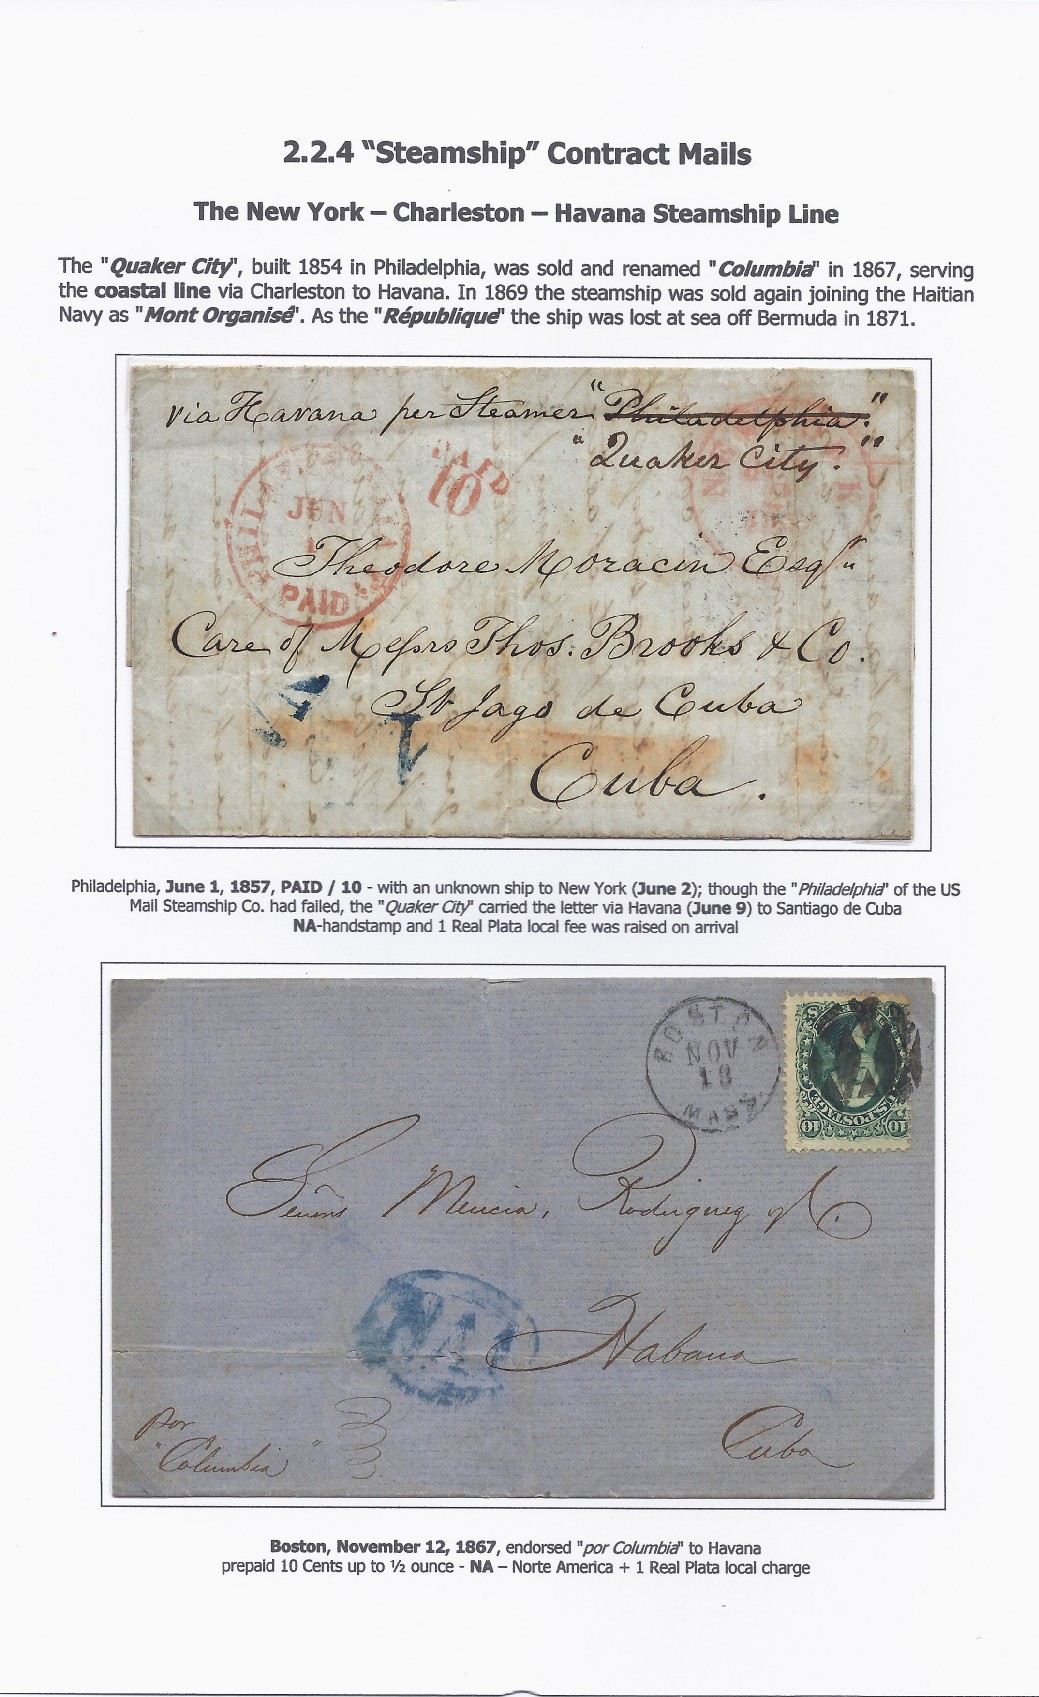 2.2.4 "Steamship" Contract Mails
The New York – Charleston – Havana Steamship Line
The "Quaker City", built 1854 in Philadelphia, was sold and renamed "Columbia" in 1867, serving
the coastal line via Charleston to Havana. In 1869 the steamship was sold again joining the Haitian
Navy as "Mont Organisé". As the "République" the ship was lost at sea off Bermuda in 1871.
via Havana per Steamer "Philadelphia."
"Quaker City."
PAID
10
PHILADELPHIA
JUN
1
PAID
Theodore Moracin Esqr
Care of Messrs Thos. Brooks & Co.
St Jago de Cuba
Cuba.
NA
1
Philadelphia, June 1, 1857, PAID / 10 - with an unknown ship to New York (June 2); though the "Philadelphia" of the US
Mail Steamship Co. had failed, the "Quaker City" carried the letter via Havana (June 9) to Santiago de Cuba
NA-handstamp and 1 Real Plata local fee was raised on arrival
BOSTON
NOV
18
MASS.
U.S. POSTAGE
10 10
Señores Mencia, Rodriguez y C.
NA1
Habana
por
"Columbia"
Cuba
Boston, November 12, 1867, endorsed "por Columbia" to Havana
prepaid 10 Cents up to ½ ounce - NA – Norte America + 1 Real Plata local charge